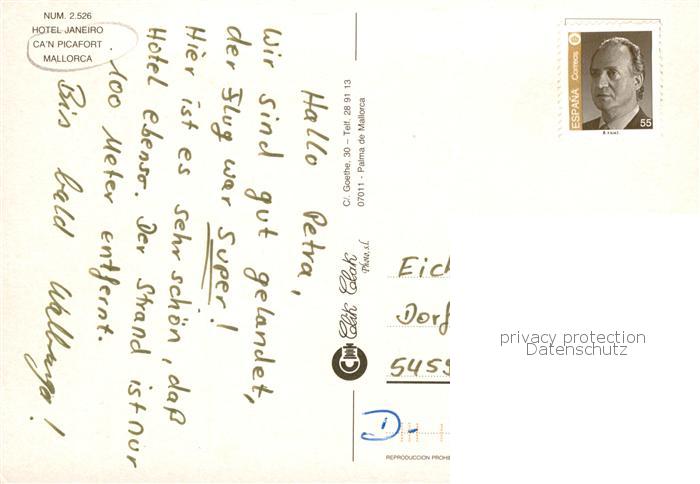 NUM. 2.526
HOTEL JANEIRO
CA'N PICAFORT
MALLORCA
Hallo Petra,
Wir sind gut gelandet,
der Flug war Super!
Hier ist es sehr schön, daß
Hotel ebenso. Der Strand ist nur
100 Meter entfernt.
Bis bald
C/. Goethe, 30 – Telf. 28 91 13
07011 - Palma de Mallorca
Clik Clak
Photo, s.l.
ESPAÑA Correos
55
Eich
Dorf
5455
D-
REPRODUCCION PROHIB
privacy protection
Datenschutz